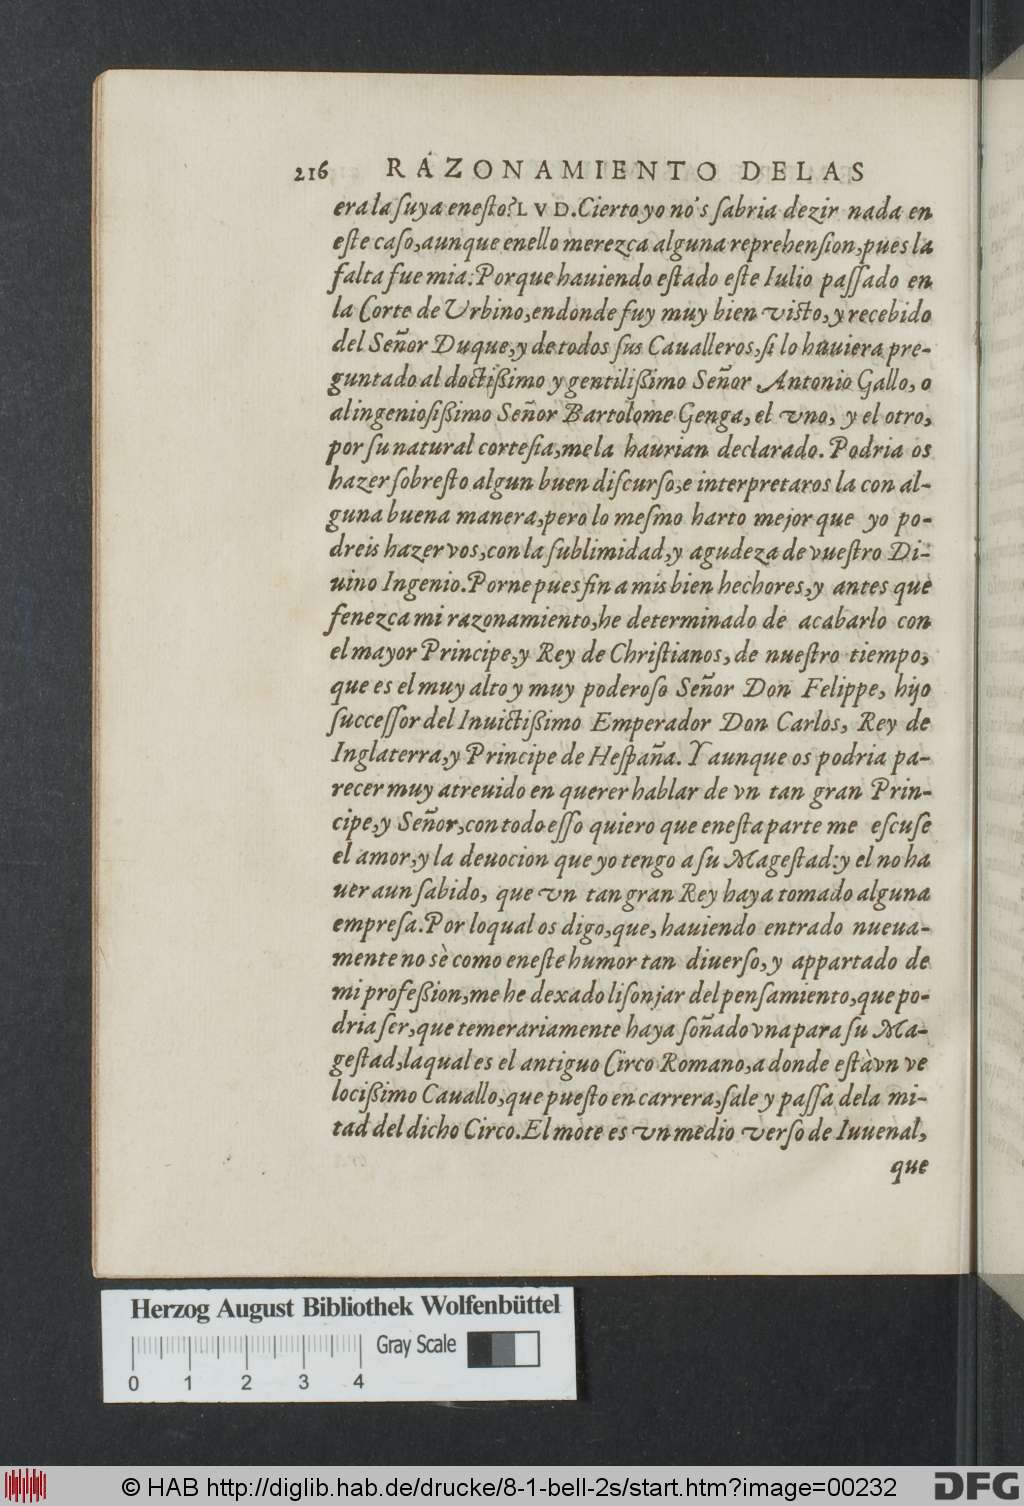 216 RAZONAMIENTO DELAS
era la suya enesto? LVD. Cierto yo no's sabria dezir nada en
este caso, aunque enello merezca alguna reprehension, pues la
falta fue mia: Porque hauiendo estado este Iulio passado en
la Corte de Vrbino, endonde fuy muy bien visto, y recebido
del Señor Duque, y de todos sus Caualleros, si lo hauiera pre-
guntado al doctißimo y gentilißimo Señor Antonio Gallo, o
al ingeniosißimo Señor Bartolome Genga, el vno, y el otro,
por su natural cortesia, mela haurian declarado. Podria os
hazer sobresto algun buen discurso, e interpretaros la con al-
guna buena manera, pero lo mesmo harto mejor que yo po-
dreis hazer vos, con la sublimidad, y agudeza de vuestro Di-
uino Ingenio. Porne pues fin a mis bien hechores, y antes que
fenezca mi razonamiento, he determinado de acabarlo con
el mayor Principe, y Rey de Christianos, de nuestro tiempo,
que es el muy alto y muy poderoso Señor Don Felippe, hijo
successor del Inuictißimo Emperador Don Carlos, Rey de
Inglaterra, y Principe de Hespaña. Y aunque os podria pa-
recer muy atreuido en querer hablar de vn tan gran Prin-
cipe, y Señor, con todo esso quiero que enesta parte me escuse
el amor, y la deuocion que yo tengo a su Magestad: y el no ha
uer aun sabido, que vn tan gran Rey haya tomado alguna
empresa. Por loqual os digo, que, hauiendo entrado nueua-
mente no sè como eneste humor tan diuerso, y appartado de
mi profeßion, me he dexado lisonjar del pensamiento, que po-
dria ser, que temerariamente haya soñado vna para su Ma-
gestad, laqual es el antiguo Circo Romano, a donde està vn ve
locißimo Cauallo, que puesto en carrera, sale y passa dela mi-
tad del dicho Circo. El mote es vn medio verso de Iuuenal,
que
Herzog August Bibliothek Wolfenbüttel
Gray Scale
0 1 2 3 4
© HAB http://diglib.hab.de/drucke/8-1-bell-2s/start.htm?image=00232
DFG